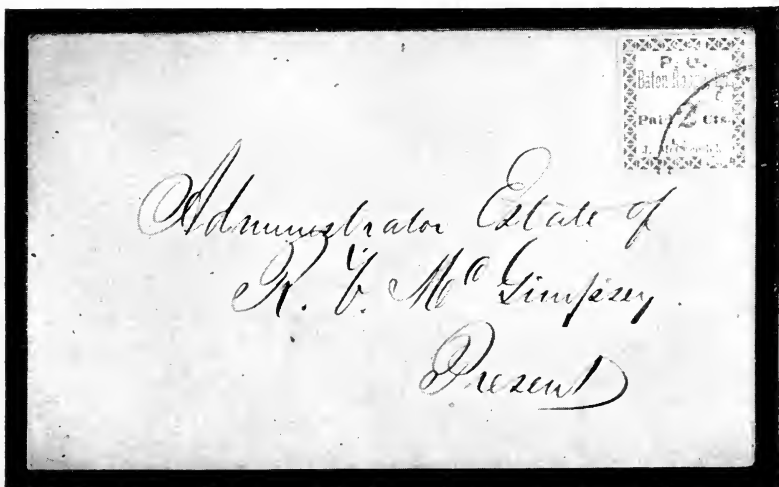 P. O.
Baton Rouge, La.
Paid 2 Cts.
J. McCormick
Administrator Estate of
R. C. McGimpsey.
Present